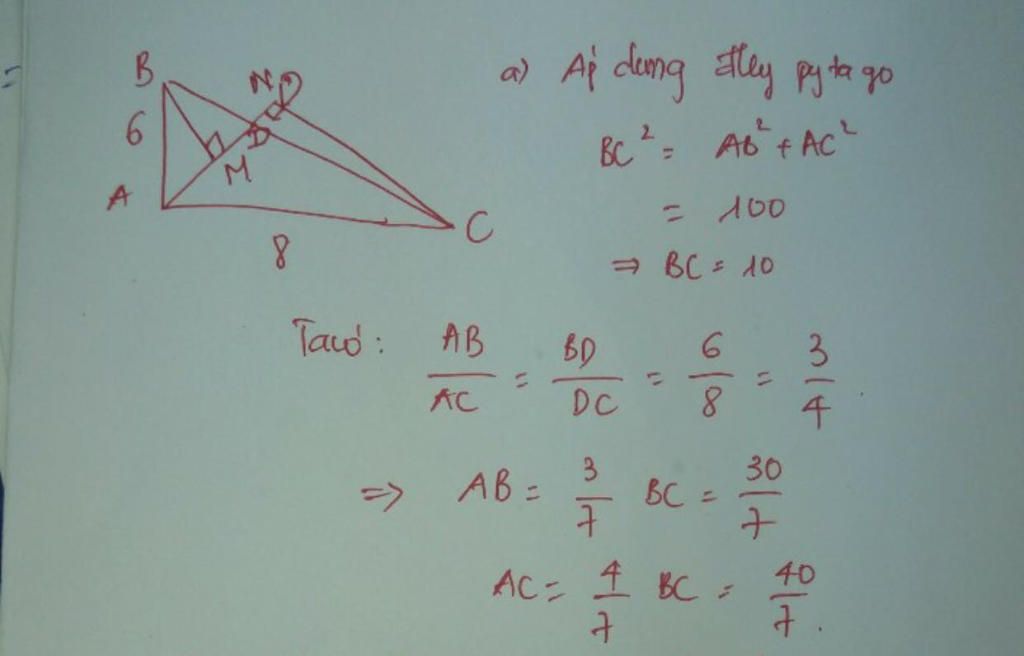 B
N
6
D
M
A
C
8
a) Áp dụng đlý pytago
BC² = AB² + AC²
= 100
⇒ BC = 10
Ta có: AB/AC = BD/DC = 6/8 = 3/4.
⇒ AB = 3/7 BC = 30/7
AC = 4/7 BC = 40/7.